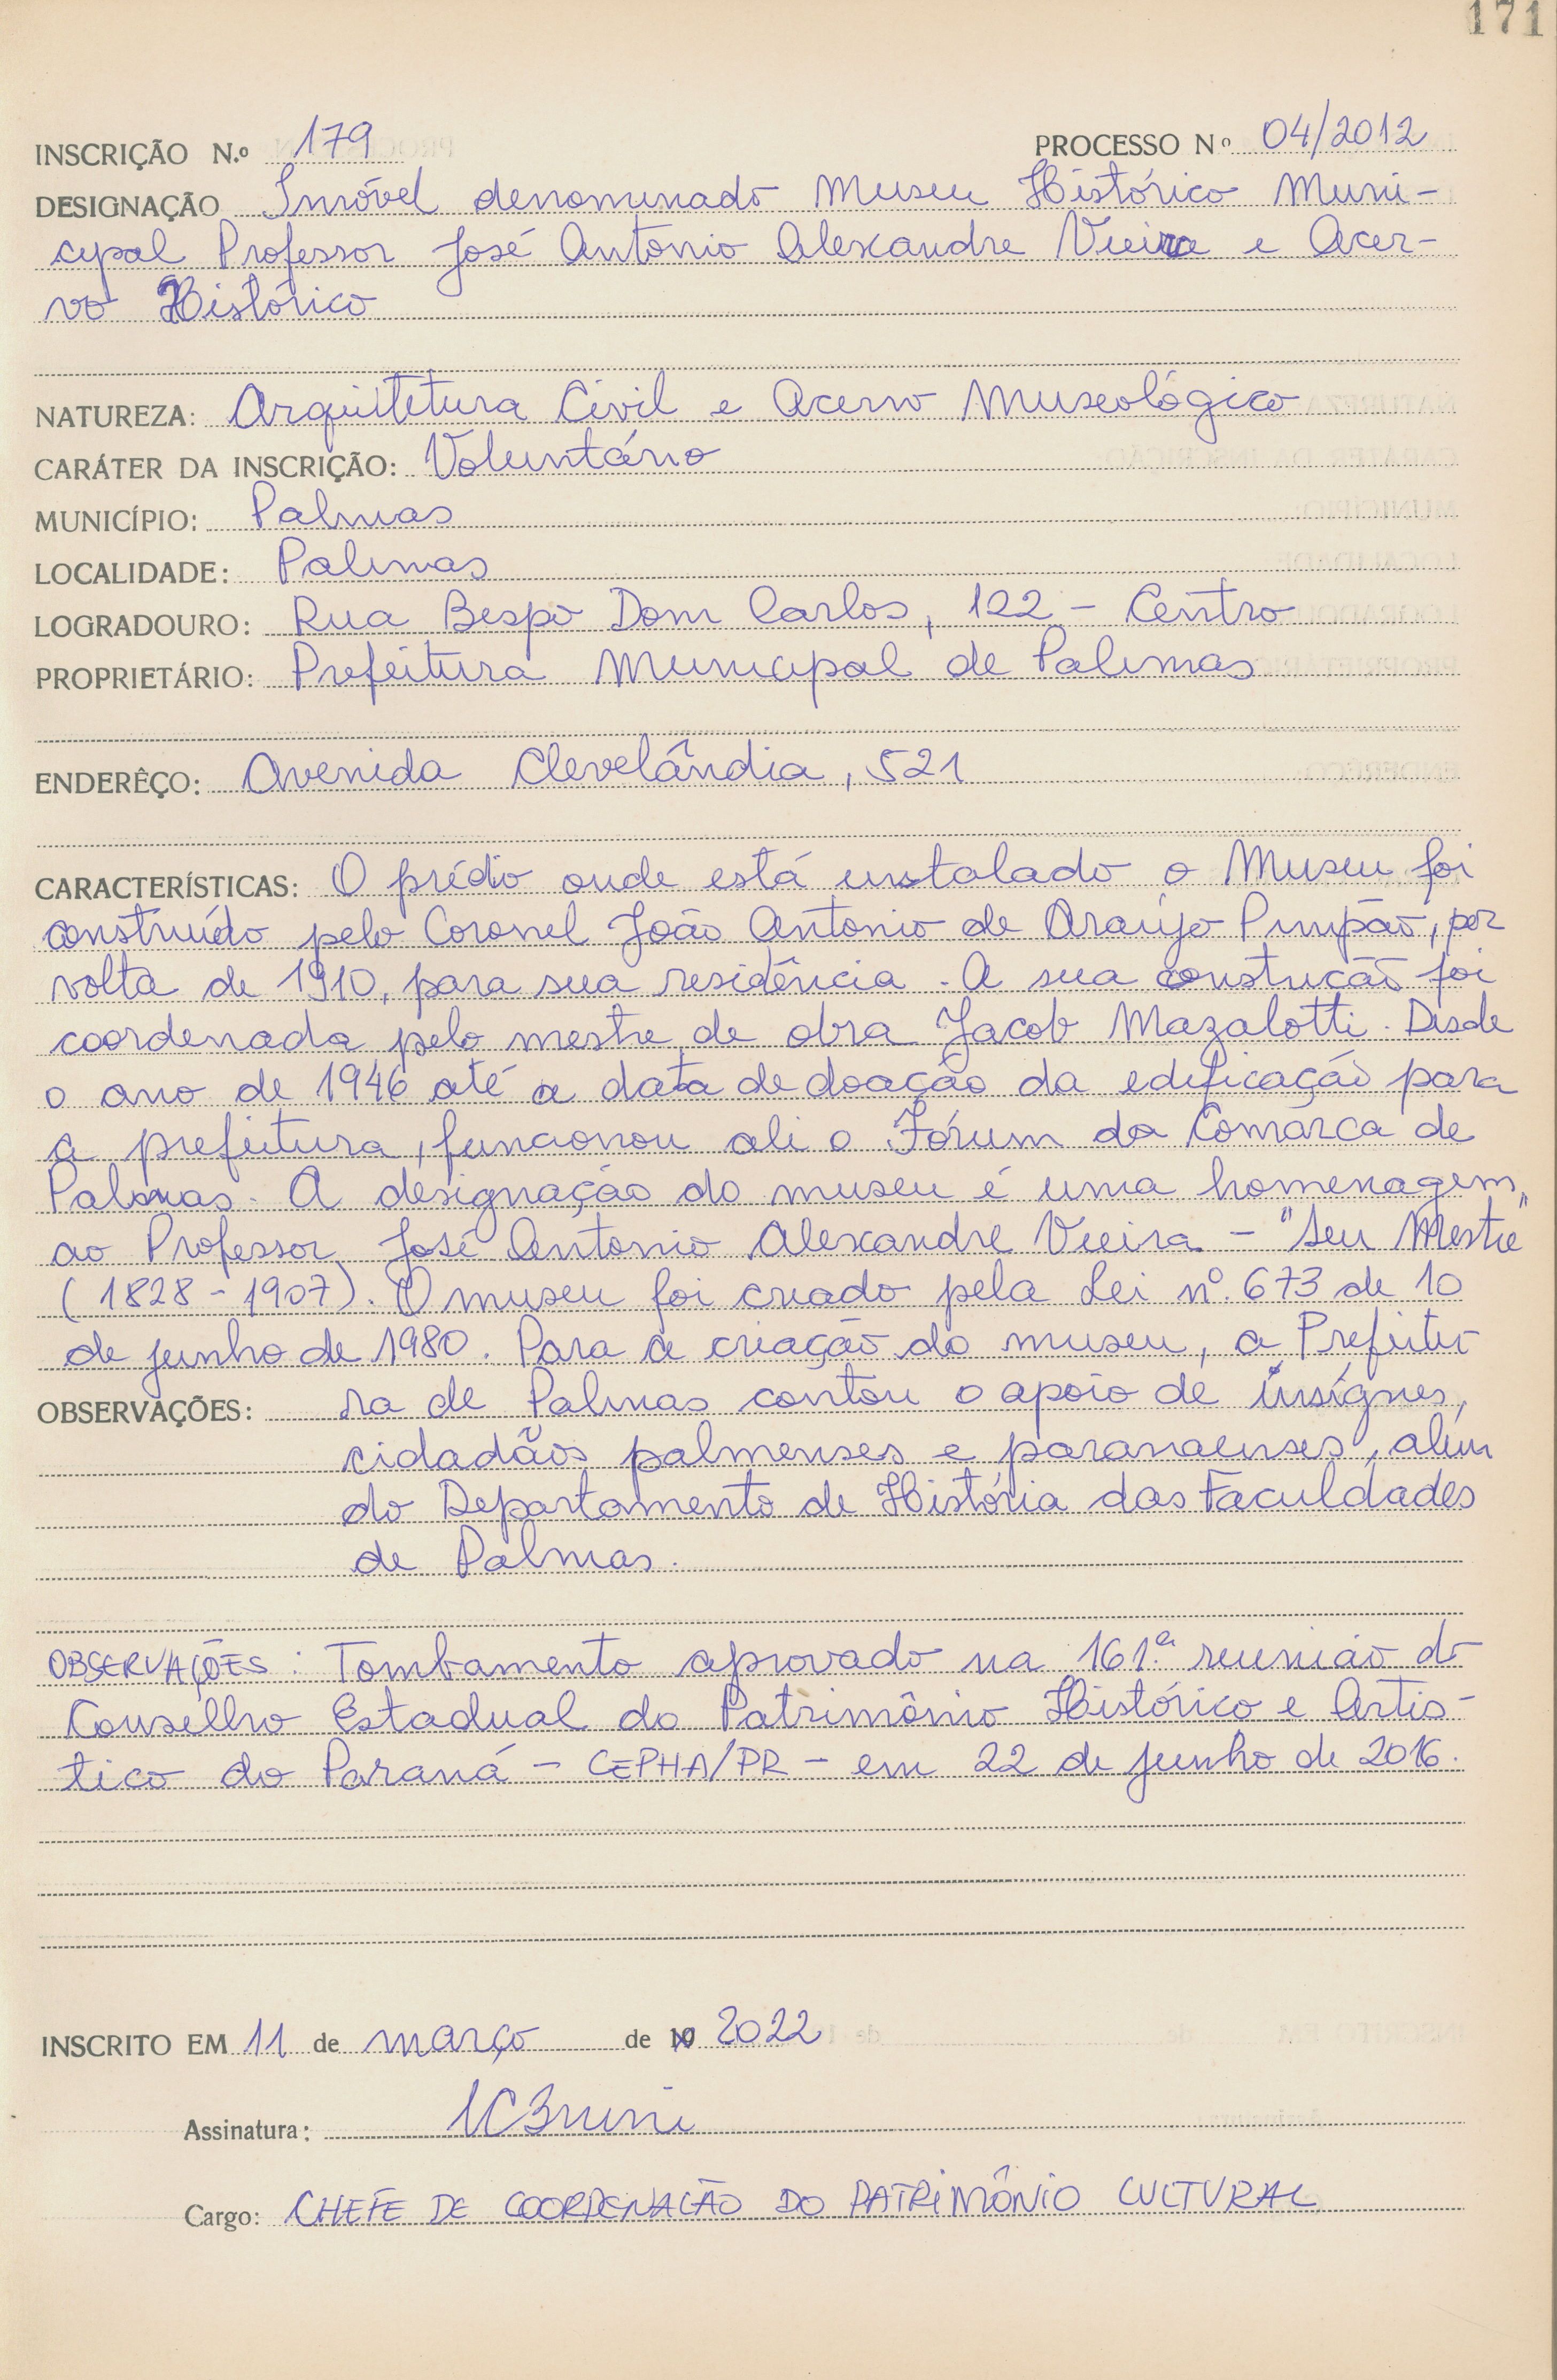 171
INSCRIÇÃO N.º 179 PROCESSO Nº 04/2012
DESIGNAÇÃO Imóvel denominado Museu Histórico Muni-
cipal Professor José Antonio Alexandre Vieira e Acer-
vo Histórico
NATUREZA: Arquitetura Civil e Acervo Museológico
CARÁTER DA INSCRIÇÃO: Voluntário
MUNICÍPIO: Palmas
LOCALIDADE: Palmas
LOGRADOURO: Rua Bispo Dom Carlos, 122 - Centro
PROPRIETÁRIO: Prefeitura Municipal de Palmas
ENDERÊÇO: Avenida Clevelândia, 521
CARACTERÍSTICAS: O prédio onde está instalado o Museu foi
construído pelo Coronel João Antonio de Araújo Pimpão, por
volta de 1910, para sua residência. A sua constução foi
coordenada pelo mestre de obra Jacob Mazalotti. Desde
o ano de 1946 até a data de doação da edificação para
a prefeitura, funcionou ali o Fórum da Comarca de
Palmas. A designação do museu é uma homenagem
ao Professor José Antonio Alexandre Vieira - "Seu Mestre"
(1828 - 1907). O museu foi criado pela Lei nº. 673 de 10
de junho de 1980. Para a criação do museu, a Prefeitu-
OBSERVAÇÕES: ra de Palmas contou o apoio de insígnes
cidadãos palmenses e paranaenses, além
do Departamento de História das Faculdades
de Palmas.
OBSERVAÇÕES: Tombamento aprovado na 161ª reunião do
Conselho Estadual do Patrimônio Histórico e Artis-
tico do Paraná - CEPHA/PR - em 22 de junho de 2016.
INSCRITO EM 11 de março de 19 2022
Assinatura:
Cargo: CHEFE DE COORDENAÇÃO DO PATRIMÔNIO CULTURAL